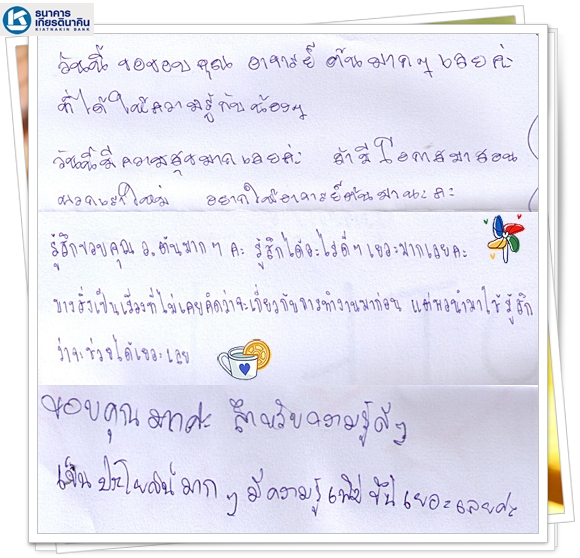 ธนาคาร
เกียรตินาคิน
KIATNAKIN BANK
วันนี้ ขอขอบคุณ อาจารย์ ต้นมากๆ เลยค่ะ
ที่ได้ให้ความรู้กับน้องๆ
วันนี้มีความสุขมากเลยค่ะ ถ้ามีโอกาสมาสอน
พวกเราใหม่ อยากให้อาจารย์ต้นมานะคะ
รู้สึกขอบคุณ อ.ต้นมากๆ คะ รู้สึกได้อะไรดีๆ เยอะมากเลยคะ
บางสิ่งเป็นเรื่องที่ไม่เคยคิดว่าจะเกี่ยวกับการทำงานมาก่อน แต่พอนำมาใช้รู้สึก
ว่าจะช่วยได้เยอะเลย
ขอบคุณมากค่ะ สำหรับความรู้ดีๆ
เป็นประโยชน์มากๆ มีความรู้เพิ่มขึ้นเยอะเลยค่ะ